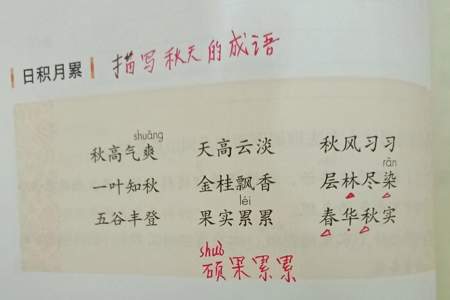 日积月累 描写秋天的成语
shuǎng
秋高气爽 天高云淡 秋风习习
rǎn
一叶知秋 金桂飘香 层林尽染
léi
五谷丰登 果实累累 春华秋实
shuò
硕果累累